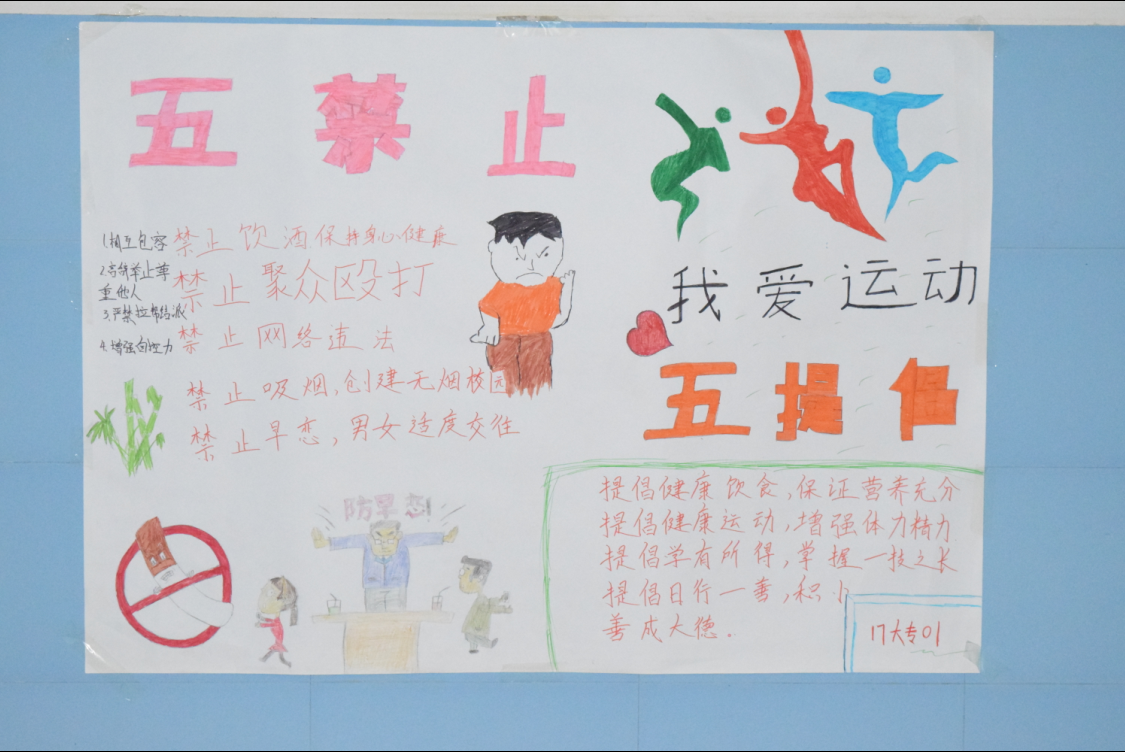 五禁止
1.相互包容
2.言行举止尊
重他人
3.严禁拉帮结派
4.增强自控力
禁止饮酒保持身心健康
禁止聚众殴打
禁止网络违法
禁止吸烟,创建无烟校园
禁止早恋,男女适度交往
防早恋!
我爱运动
五提倡
提倡健康饮食,保证营养充分
提倡健康运动,增强体力精力
提倡学有所得,掌握一技之长
提倡日行一善,积小
善成大德.
17大专01